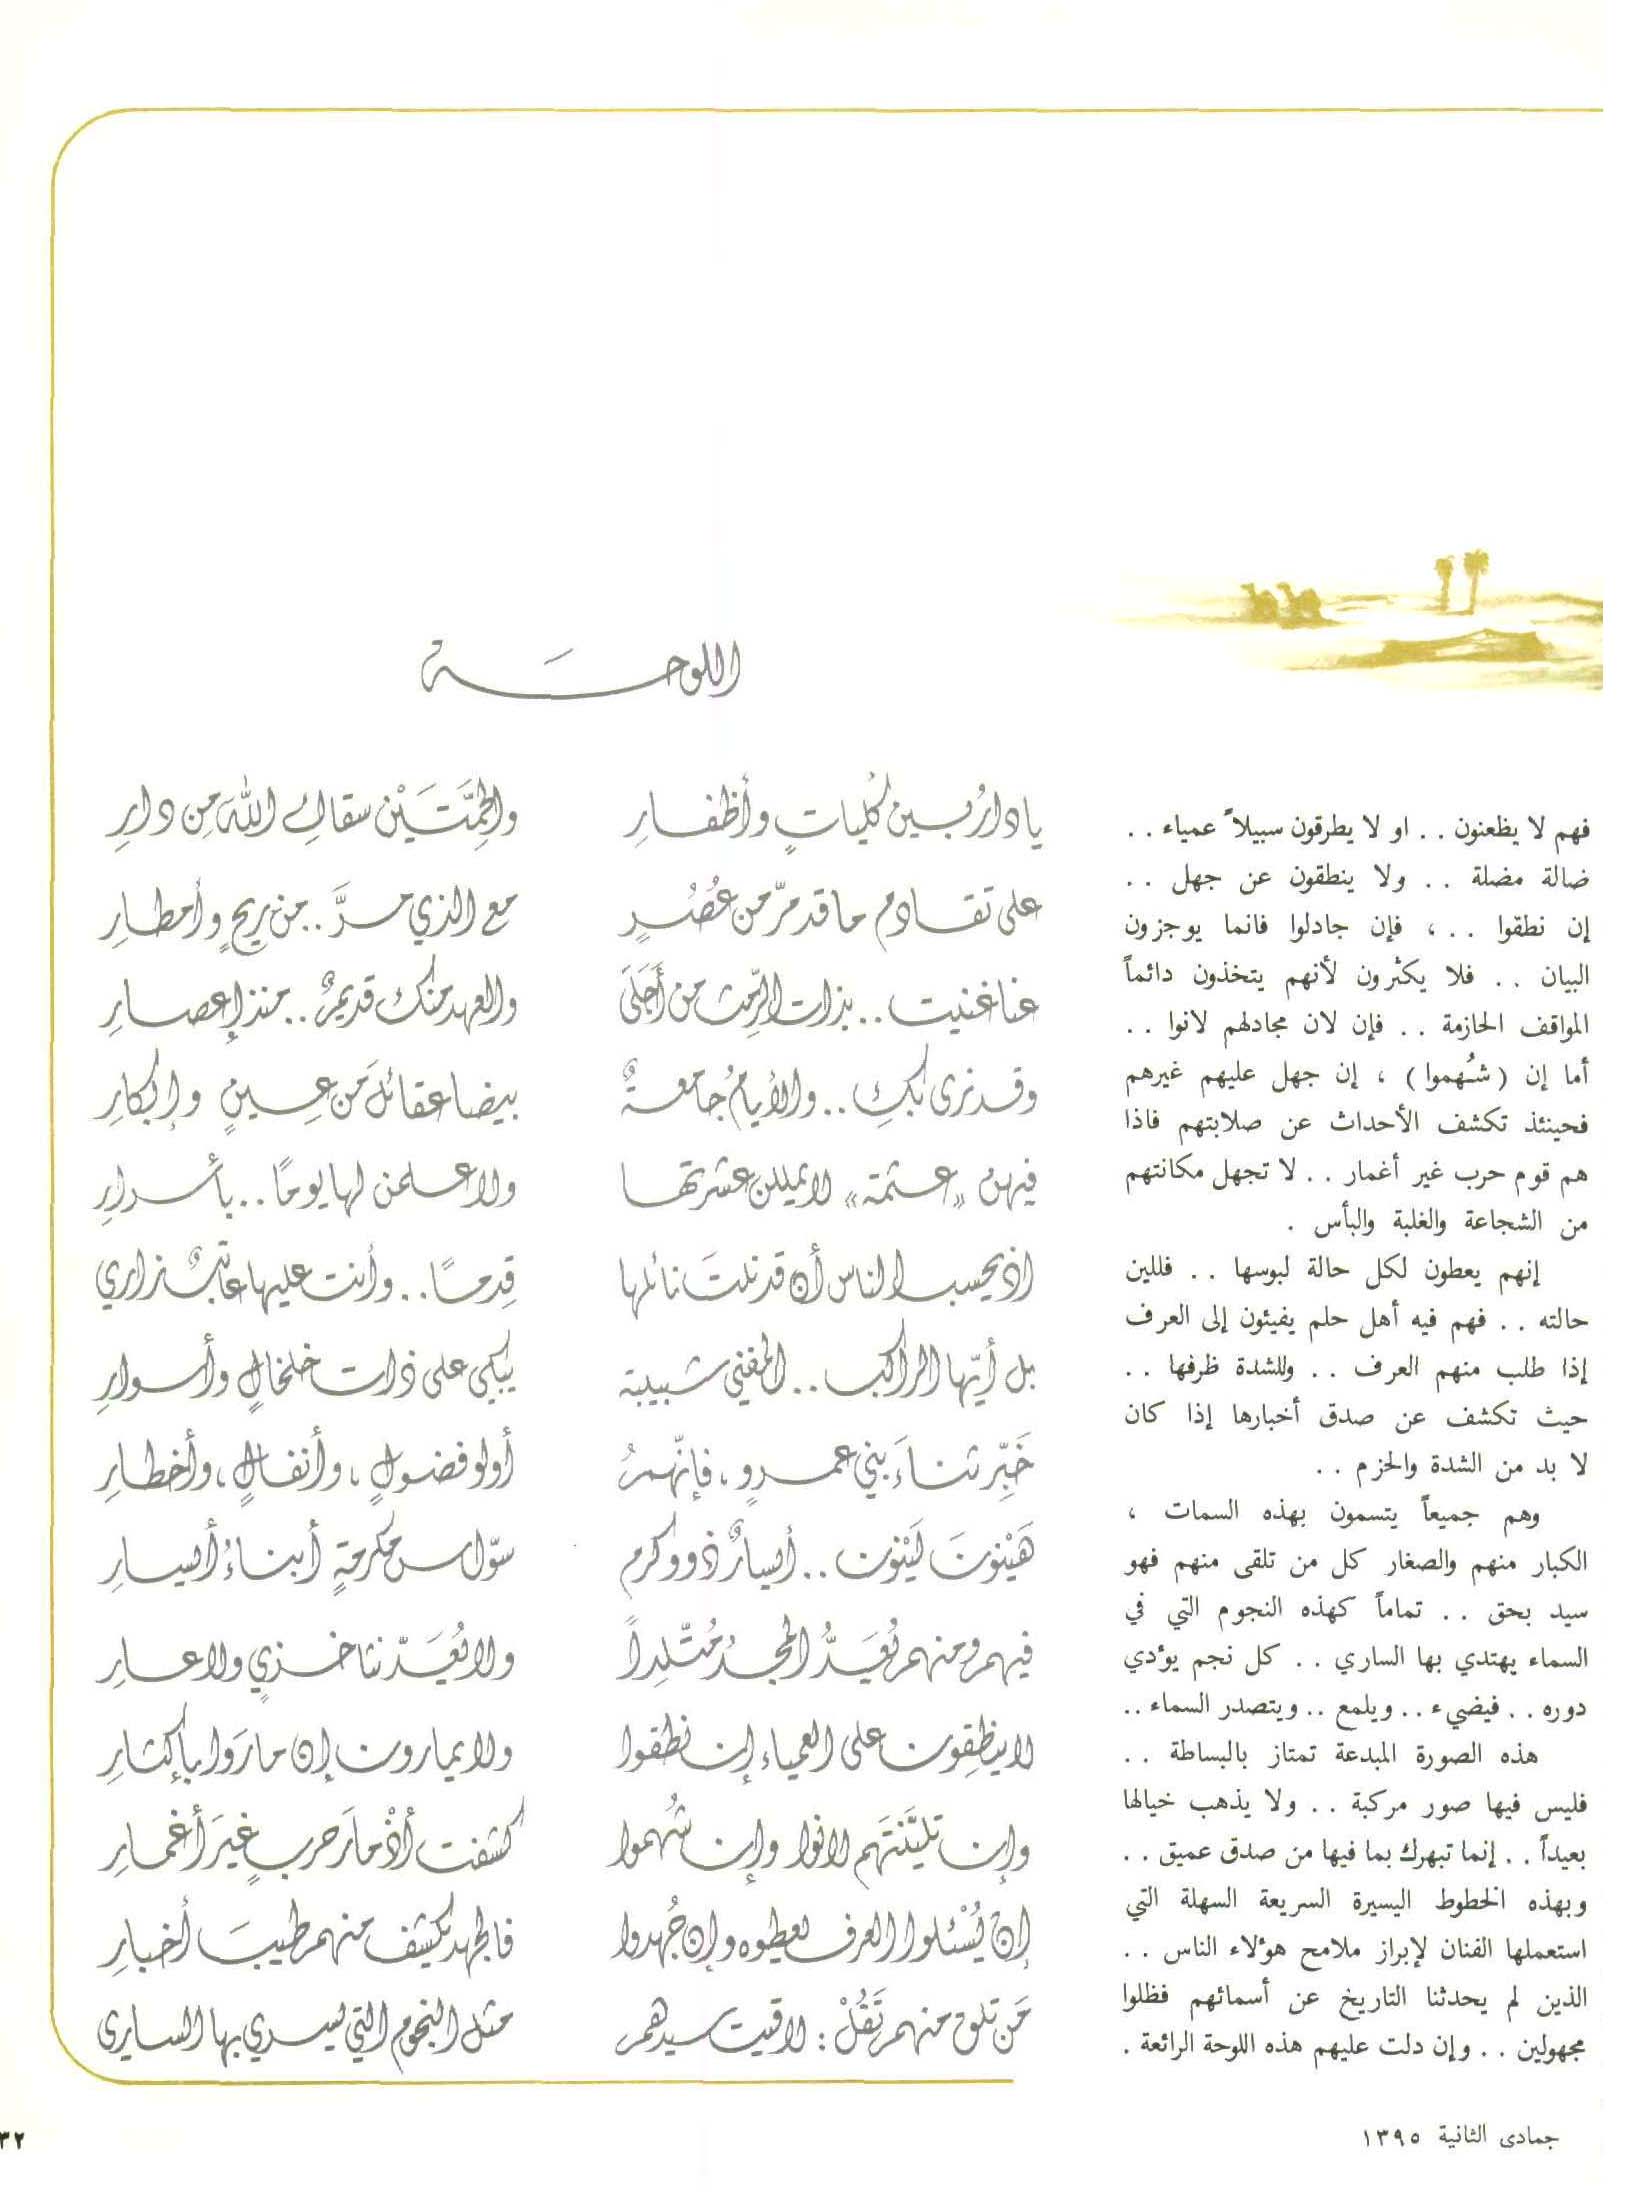 فهم لا يظعنون . . او لا يطرقون سبيلاً عمياء . .
ضالة مضلة . . ولا ينطقون عن جهل . .
إن نطقوا . . ، فإن جادلوا فانما يوجزون
البيان . . فلا يكثرون لأنهم يتخذون دائماً
المواقف الحازمة . . فإن لان مجادلهم لانوا . .
أما إن (شُهموا) ، إن جهل عليهم غيرهم
فحينئذ تكشف الأحداث عن صلابتهم فاذا
هم قوم حرب غير أغمار . . لا تجهل مكانتهم
من الشجاعة والغلبة والبأس .
إنهم يعطون لكل حالة لبوسها . . فللين
حالته . . فهم فيه أهل حلم يفيئون إلى العرف
إذا طلب منهم العرف . . وللشدة ظرفها . .
حيث تكشف عن صدق أخبارها إذا كان
لا بد من الشدة والحزم . .
وهم جميعاً يتسمون بهذه السمات ،
الكبار منهم والصغار كل من تلقى منهم فهو
سيد بحق . . تماماً كهذه النجوم التي في
السماء يهتدي بها الساري . . كل نجم يؤدي
دوره . . فيضيء . . ويلمع . . ويتصدر السماء . .
هذه الصورة المبدعة تمتاز بالبساطة . .
فليس فيها صور مركبة . . ولا يذهب خيالها
بعيداً . . إنما تبهرك بما فيها من صدق عميق . .
وبهذه الخطوط اليسيرة السريعة السهلة التي
استعملها الفنان لإبراز ملامح هؤلاء الناس . .
الذين لم يحدثنا التاريخ عن أسمائهم فظلوا
مجهولين . . وإن دلت عليهم هذه اللوحة الرائعة .
اللوحــة
يا دارُ بين كُليات وأظفار والحِمَّتَيْن سقاك الله من دار
على تقادم ما قد مرّ من عُصُرٍ مع الذي مرَّ . . من ريحٍ وأمطار
عنا غنيت . . بذات الرِّمث من أَجَلَى والعهد منك قديمٌ . . منذ إعصار
وقد نرى بكِ . . والأيامُ جامعةٌ بيضا عقائلَ من عِينٍ وإبكار
فيهن «عثمة» لا يمللن عشرتها ولا علمن لها يومًا . . بأسرار
اذ يحسب الناس أن قد نلتَ نائلها قِدمًا . . وأنت عليها عاتبٌ زاري
بل أيّها الراكب . . المفني شبيبته يبكي على ذات خلخالٍ وأسوار
خَبِّر ثناءَ بني عمرو ، فإنّهمُ أولو فضول ، وأنفالٍ ، وأخطار
هَيْنُونَ لَيْنُونَ . . أيسارٌ ذوو كرم سوّاس مكرمةٍ أبناءُ أيسار
فيهم ومنهم يُعَدُّ المجدُ مُتّلِداً ولا يُعَدّ نثا خزيٍ ولا عار
لا ينطقون على العمياء إن نطقوا ولا يمارون إن مارَوا بإكثار
وإن تليَّنتَهم لانوا وإن شُهموا كشفت أذْمارَ حربٍ غيرَ أغمار
إن يُسْئلوا العرف يعطوه وإن جُهدوا فالجهد يكشف منهم طيبَ أخبار
مَن تلق منهم تَقُلْ : لاقيت سيدهم مثل النجوم التي يسري بها السارى
جمادى الثانية ١٣٩٥
٣٢